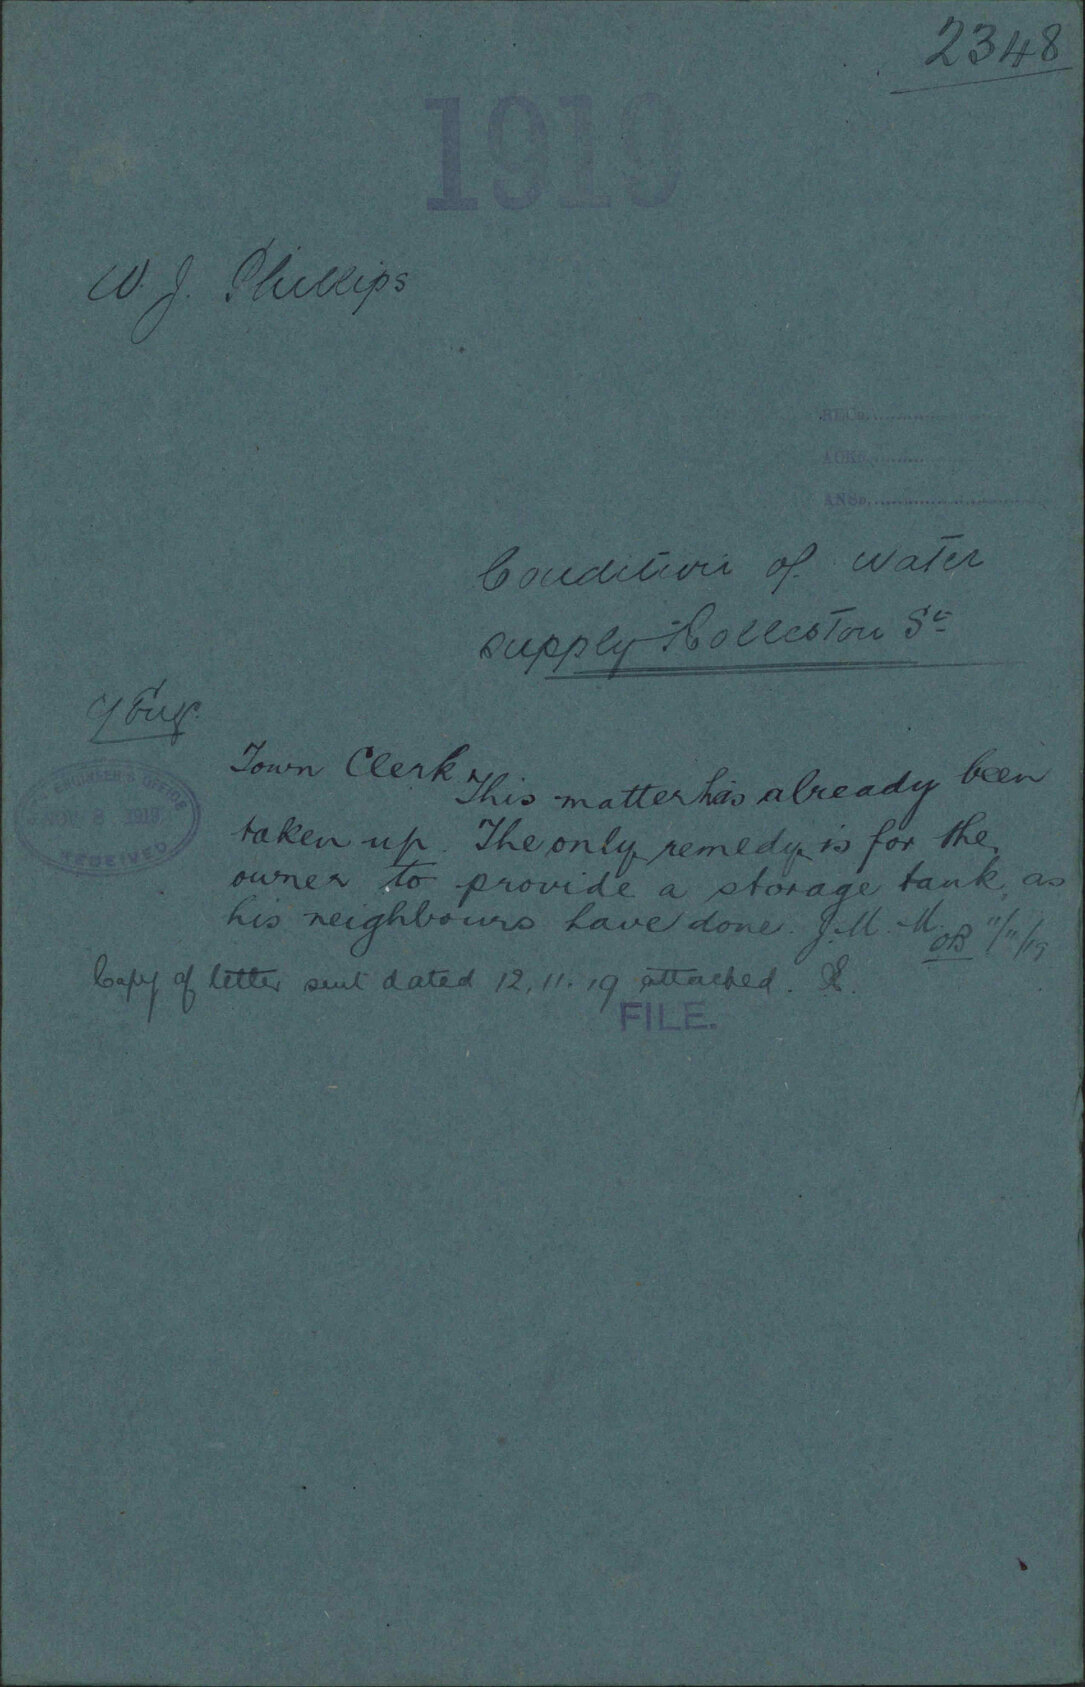 2348
1919
W. J. Phillips
RECD.
ACKD.
ANSD.
Condition of water
supply Rolleston St
Cy Eng.
ENGINEER'S OFFICE
NOV 8 1919
RECEIVED
Town Clerk
This matter has already been
taken up. The only remedy is for the
owner to provide a storage tank, as
his neighbours have done. J. M. M.
11/11/19
Copy of letter sent dated 12.11.19 attached.
FILE.